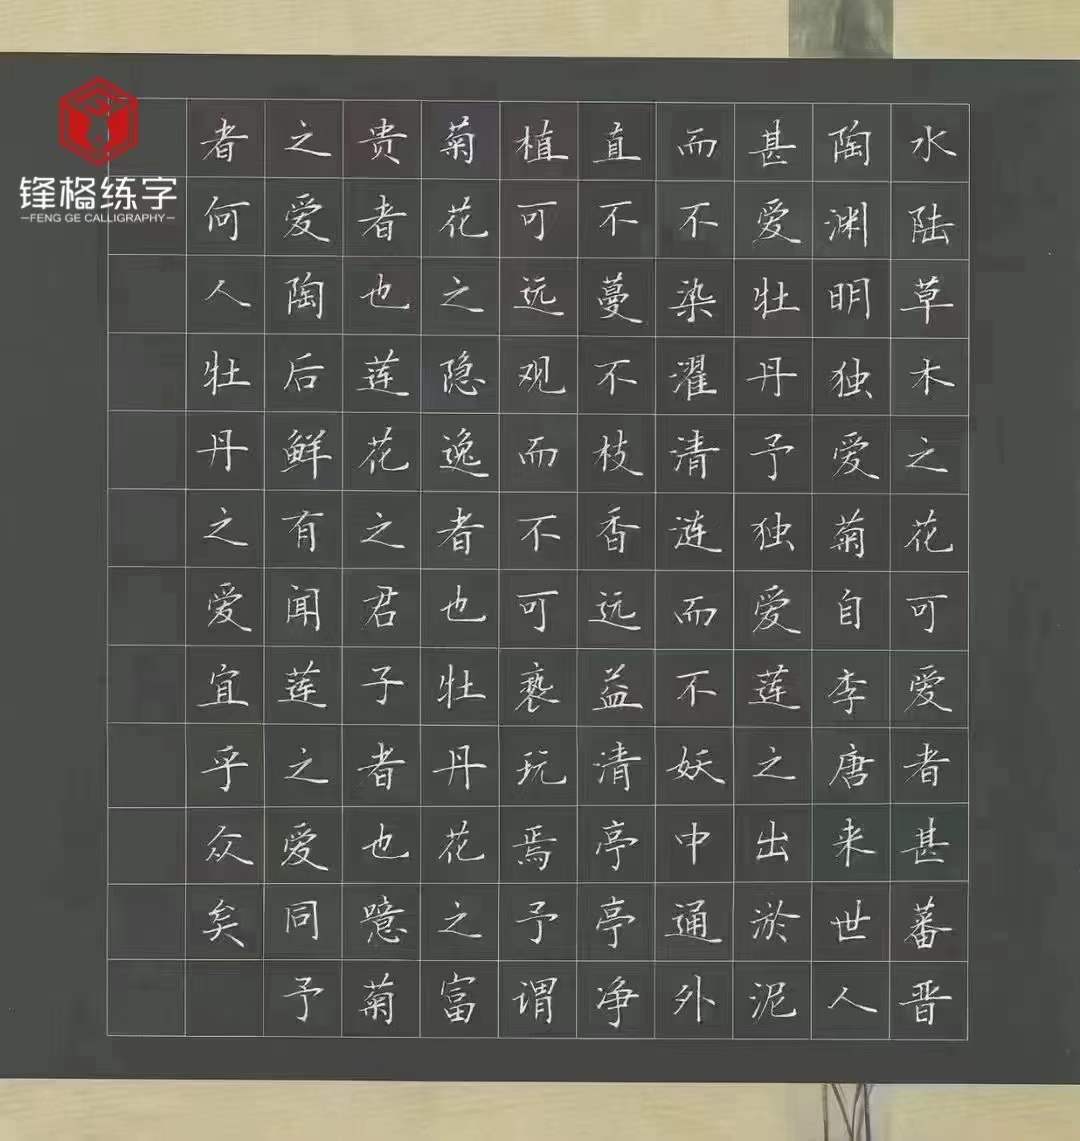 锋格练字
FENG GE CALLIGRAPHY
水陆草木之花可爱者甚蕃晋
陶渊明独爱菊自李唐来世人
甚爱牡丹予独爱莲之出淤泥
而不染濯清涟而不妖中通外
直不蔓不枝香远益清亭亭净
植可远观而不可亵玩焉予谓
菊花之隐逸者也牡丹花之富
贵者也莲花之君子者也噫菊
之爱陶后鲜有闻莲之爱同予
者何人牡丹之爱宜乎众矣